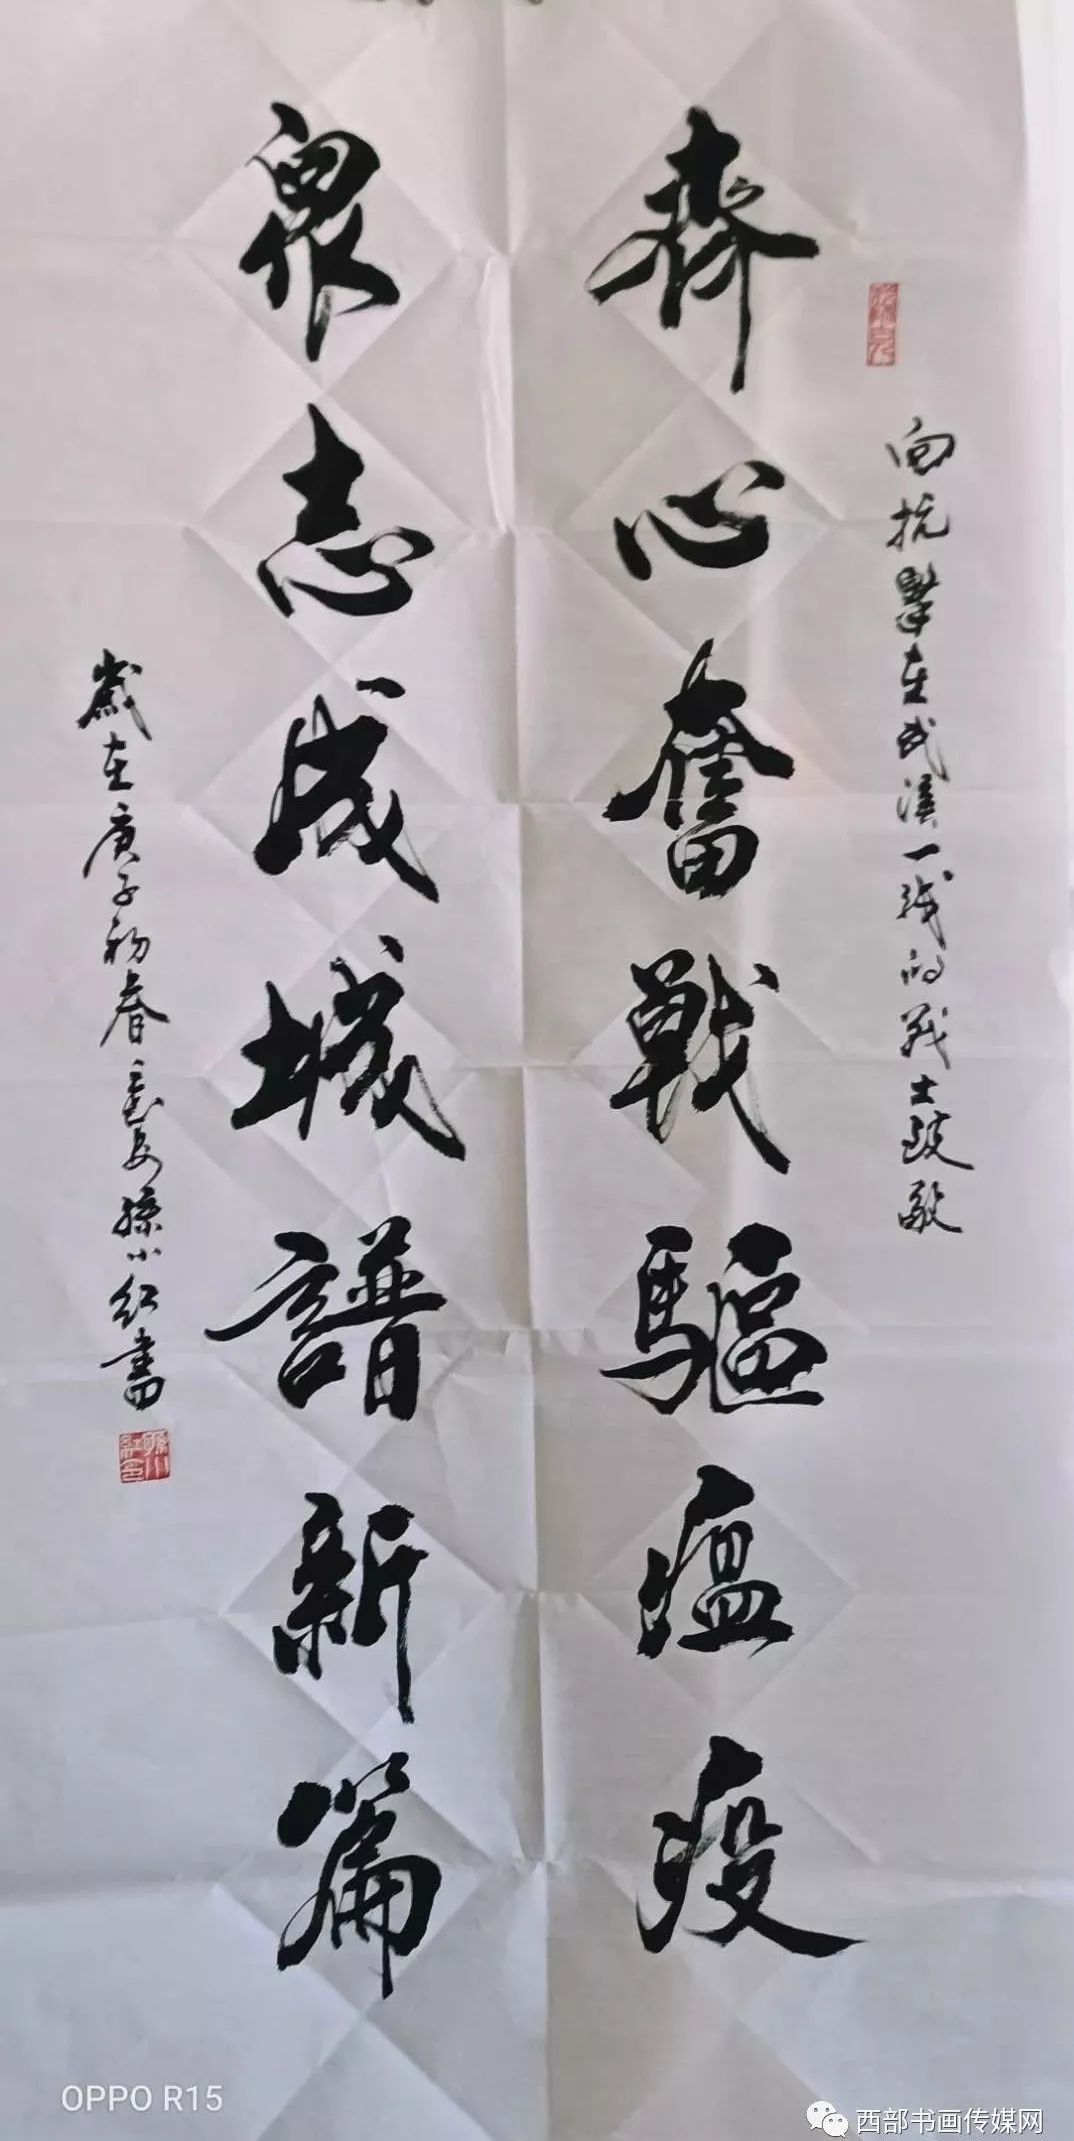 向抗擊在武漢一线的战士致敬
齊心奮戰驅瘟疫
眾志成城譜新篇
歲在庚子初春長安孫小红書
OPPO R15
西部书画传媒网